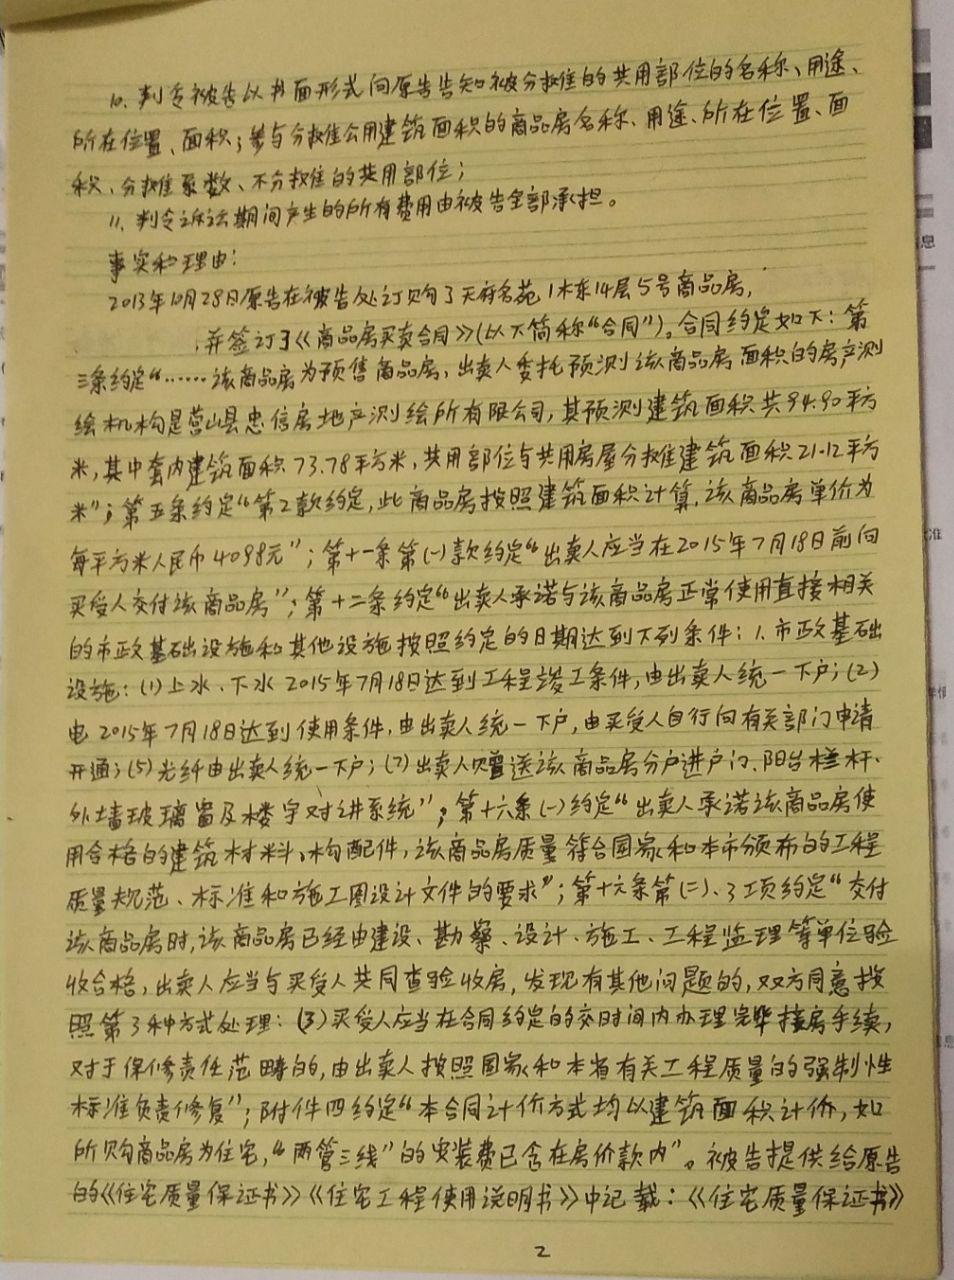 10、判令被告以书面形式向原告告知被分摊的共用部位的名称、用途、
所在位置、面积；参与分摊公用建筑面积的商品房名称、用途、所在位置、面
积、分摊系数、不分摊的共用部位；
11、判令诉讼期间产生的所有费用由被告全部承担。
事实和理由：
2013年10月28日原告在被告处订购了天府名苑1栋14层5号商品房，
并签订了《商品房买卖合同》(以下简称“合同”)。合同约定如下：第
三条约定“……该商品房为预售商品房，出卖人委托预测该商品房面积的房产测
绘机构是营山县忠信房地产测绘所有限公司，其预测建筑面积共94.90平方
米，其中套内建筑面积73.78平方米，共用部位与共用房屋分摊建筑面积21.12平方
米”；第五条约定“第2款约定，此商品房按照建筑面积计算，该商品房单价为
每平方米人民币4098元”；第十一条第(一)款约定“出卖人应当在2015年7月18日前向
买受人交付该商品房”；第十二条约定“出卖人承诺与该商品房正常使用直接相关
的市政基础设施和其他设施按照约定的日期达到下列条件：1.市政基础
设施：(1)上水、下水2015年7月18日达到工程竣工条件，由出卖人统一下户；(2)
电2015年7月18日达到使用条件，由出卖人统一下户，由买受人自行向有关部门申请
开通；(5)光纤由出卖人统一下户；(7)出卖人赠送该商品房分户进户门、阳台栏杆、
外墙玻璃窗及楼宇对讲系统”；第十六条(一)约定“出卖人承诺该商品房使
用合格的建筑材料、构配件，该商品房质量符合国家和本市颁布的工程
质量规范、标准和施工图设计文件的要求”；第十六条第(二)、3项约定“交付
该商品房时，该商品房已经由建设、勘察、设计、施工、工程监理等单位验
收合格，出卖人应当与买受人共同查验收房，发现有其他问题的，双方同意按
照第3种方式处理：(3)买受人应当在合同约定的交时间内办理完毕接房手续，
对于保修责任范畴的，由出卖人按照国家和本省有关工程质量的强制性
标准负责修复”；附件四约定“本合同计价方式均以建筑面积计价，如
所购商品房为住宅，“两管三线”的安装费已含在房价款内”。被告提供给原告
的《住宅质量保证书》《住宅工程使用说明书》中记载：《住宅质量保证书》
2